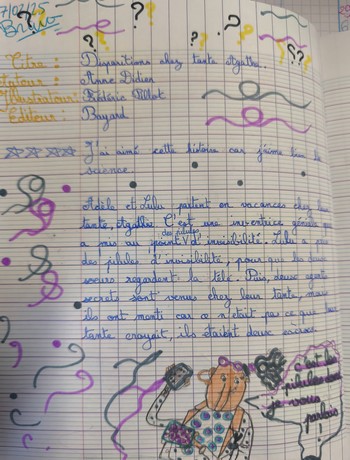 7/02/25
Bravo
Titre : Disparitions chez tante Agathe.
Auteur : Anne Didier
Illustrateur : Frédéric Pillot
Éditeur : Bayard
J'ai aimé cette histoire car j'aime bien la
science.
Adèle et Lulu partent en vacances chez leur
tante, Agathe. C'est une inventrice géniale qui
a mis au point des pilules d'invisibilité. Lulu a pris
des pilules d'invisibilité, pour que les deux
soeurs regardent la télé. Puis, deux agents
secrets sont venus chez leur tante, mais
ils ont menti car ce n'était pas ce que leur
tante croyait, ils étaient deux escrocs.
c'est les
pilules dont
je vous
parlais
!